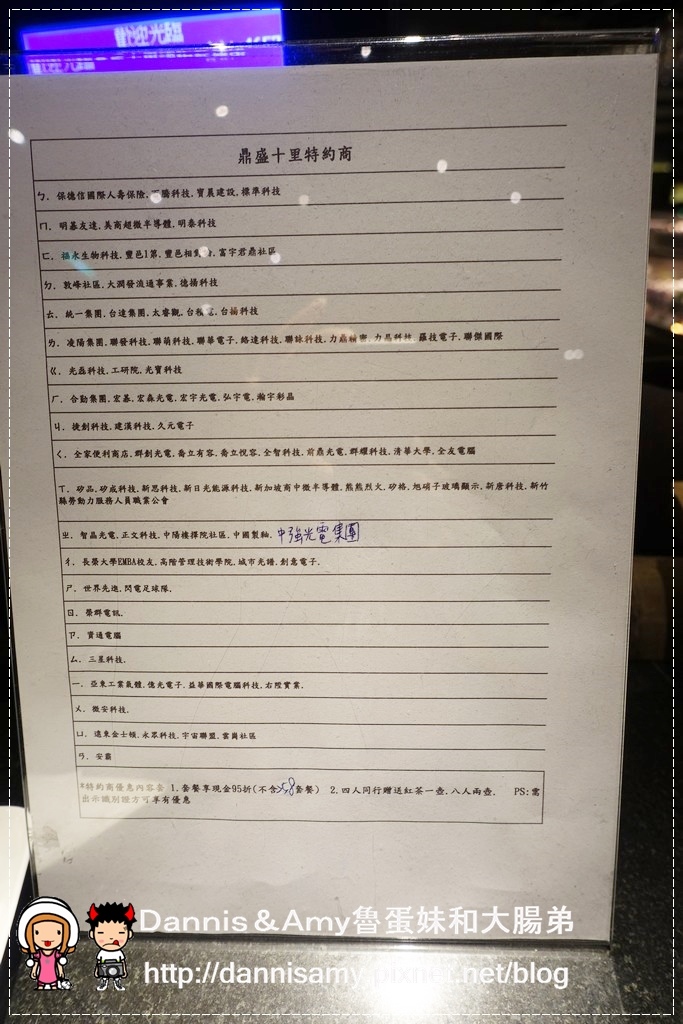 歡迎光臨
鼎盛十里特約商
ㄅ. 保德信國際人壽保險. 騰科技. 寶晨建設. 標準科技
ㄇ. 明基友達. 美商超微半導體. 明泰科技
ㄈ. 福永生物科技. 豐邑1第. 豐邑相對. 富宇君鼎社區
ㄉ. 敦峰社區. 大潤發流通事業. 德揚科技
ㄊ. 統一集團. 台達集團. 太睿觀. 台積. 台揚科技
ㄌ. 凌陽集團. 聯發科技. 聯萌科技. 聯華電子. 絡達科技. 聯詠科技. 力鼎精密. 力晶科技. 羅技電子. 聯傑國際
ㄍ. 光磊科技. 工研院. 光寶科技
ㄏ. 合勤集團. 宏碁. 宏森光電. 宏宇光電. 弘宇電. 瀚宇彩晶
ㄐ. 捷創科技. 建漢科技. 久元電子
ㄑ. 全家便利商店. 群創光電. 喬立有容. 喬立悅容. 全智科技. 前鼎光電. 群耀科技. 清華大學. 全友電腦
ㄒ. 矽品. 矽成科技. 新思科技. 新日光能源科技. 新加坡商中微半導體. 熊熊烈火. 矽格. 旭硝子玻璃顯示. 新唐科技. 新竹
縣勞動力服務人員職業公會
ㄓ. 智晶光電. 正文科技. 中陽樓擇院社區. 中國製釉. 中強光電集團
ㄔ. 長榮大學EMBA校友. 高階管理技術學院. 城市光譜. 創意電子.
ㄕ. 世界先進. 閃電足球隊.
ㄖ. 榮群電訊.
ㄗ. 資通電腦
ㄙ. 三星科技.
ㄧ. 亞東工業氣體. 億光電子. 益華國際電腦科技. 右陞實業.
ㄨ. 微安科技.
ㄩ. 遠東金士頓. 永眾科技. 宇宙聯盟. 雲崗社區
ㄢ. 安霸
*特約商優惠內容套 1. 套餐享現金95折(不含258套餐) 2. 四人同行贈送紅茶一壺. 八人兩壺. PS:需
出示識別證方可享有優惠
Dannis＆Amy魯蛋妹和大腸弟
http://dannisamy.pixnet.net/blog